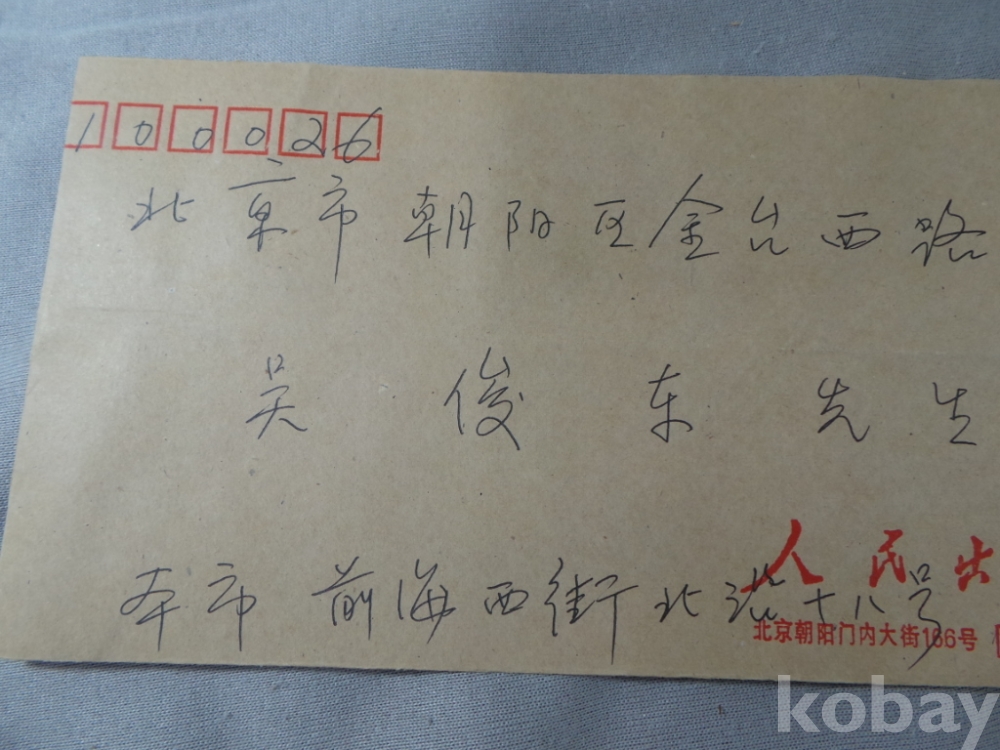 100026
北京市朝阳区金台西路
吴俊东先生
人民出
本市前海西街北沿十八号
北京朝阳门内大街166号
kobay